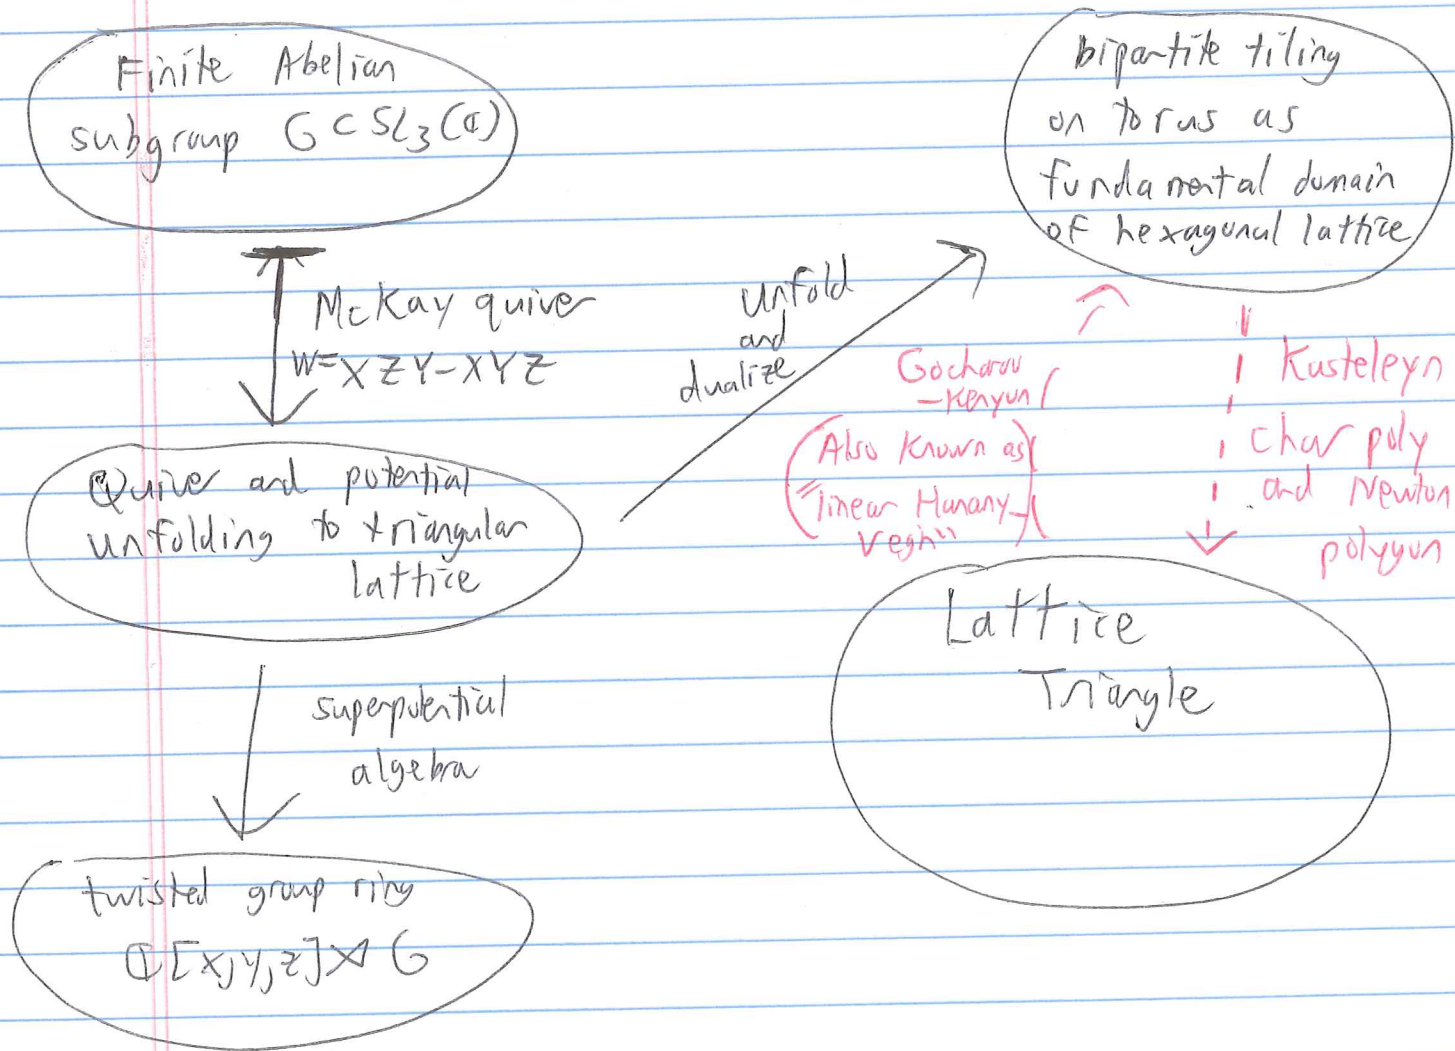 Finite Abelian
subgroup G ⊂ SL₃(ℂ)
McKay quiver
W=XZY-XYZ
Quiver and potential
unfolding to triangular
lattice
superpotential
algebra
twisted group ring
ℂ[x,y,z]⋊G
unfold
and
dualize
bipartite tiling
on torus as
fundamental domain
of hexagonal lattice
Gocharov
-Kenyon
(Also known as
"linear Hanany-
Vegh")
Kasteleyn
char poly
and Newton
polygon
Lattice
Triangle